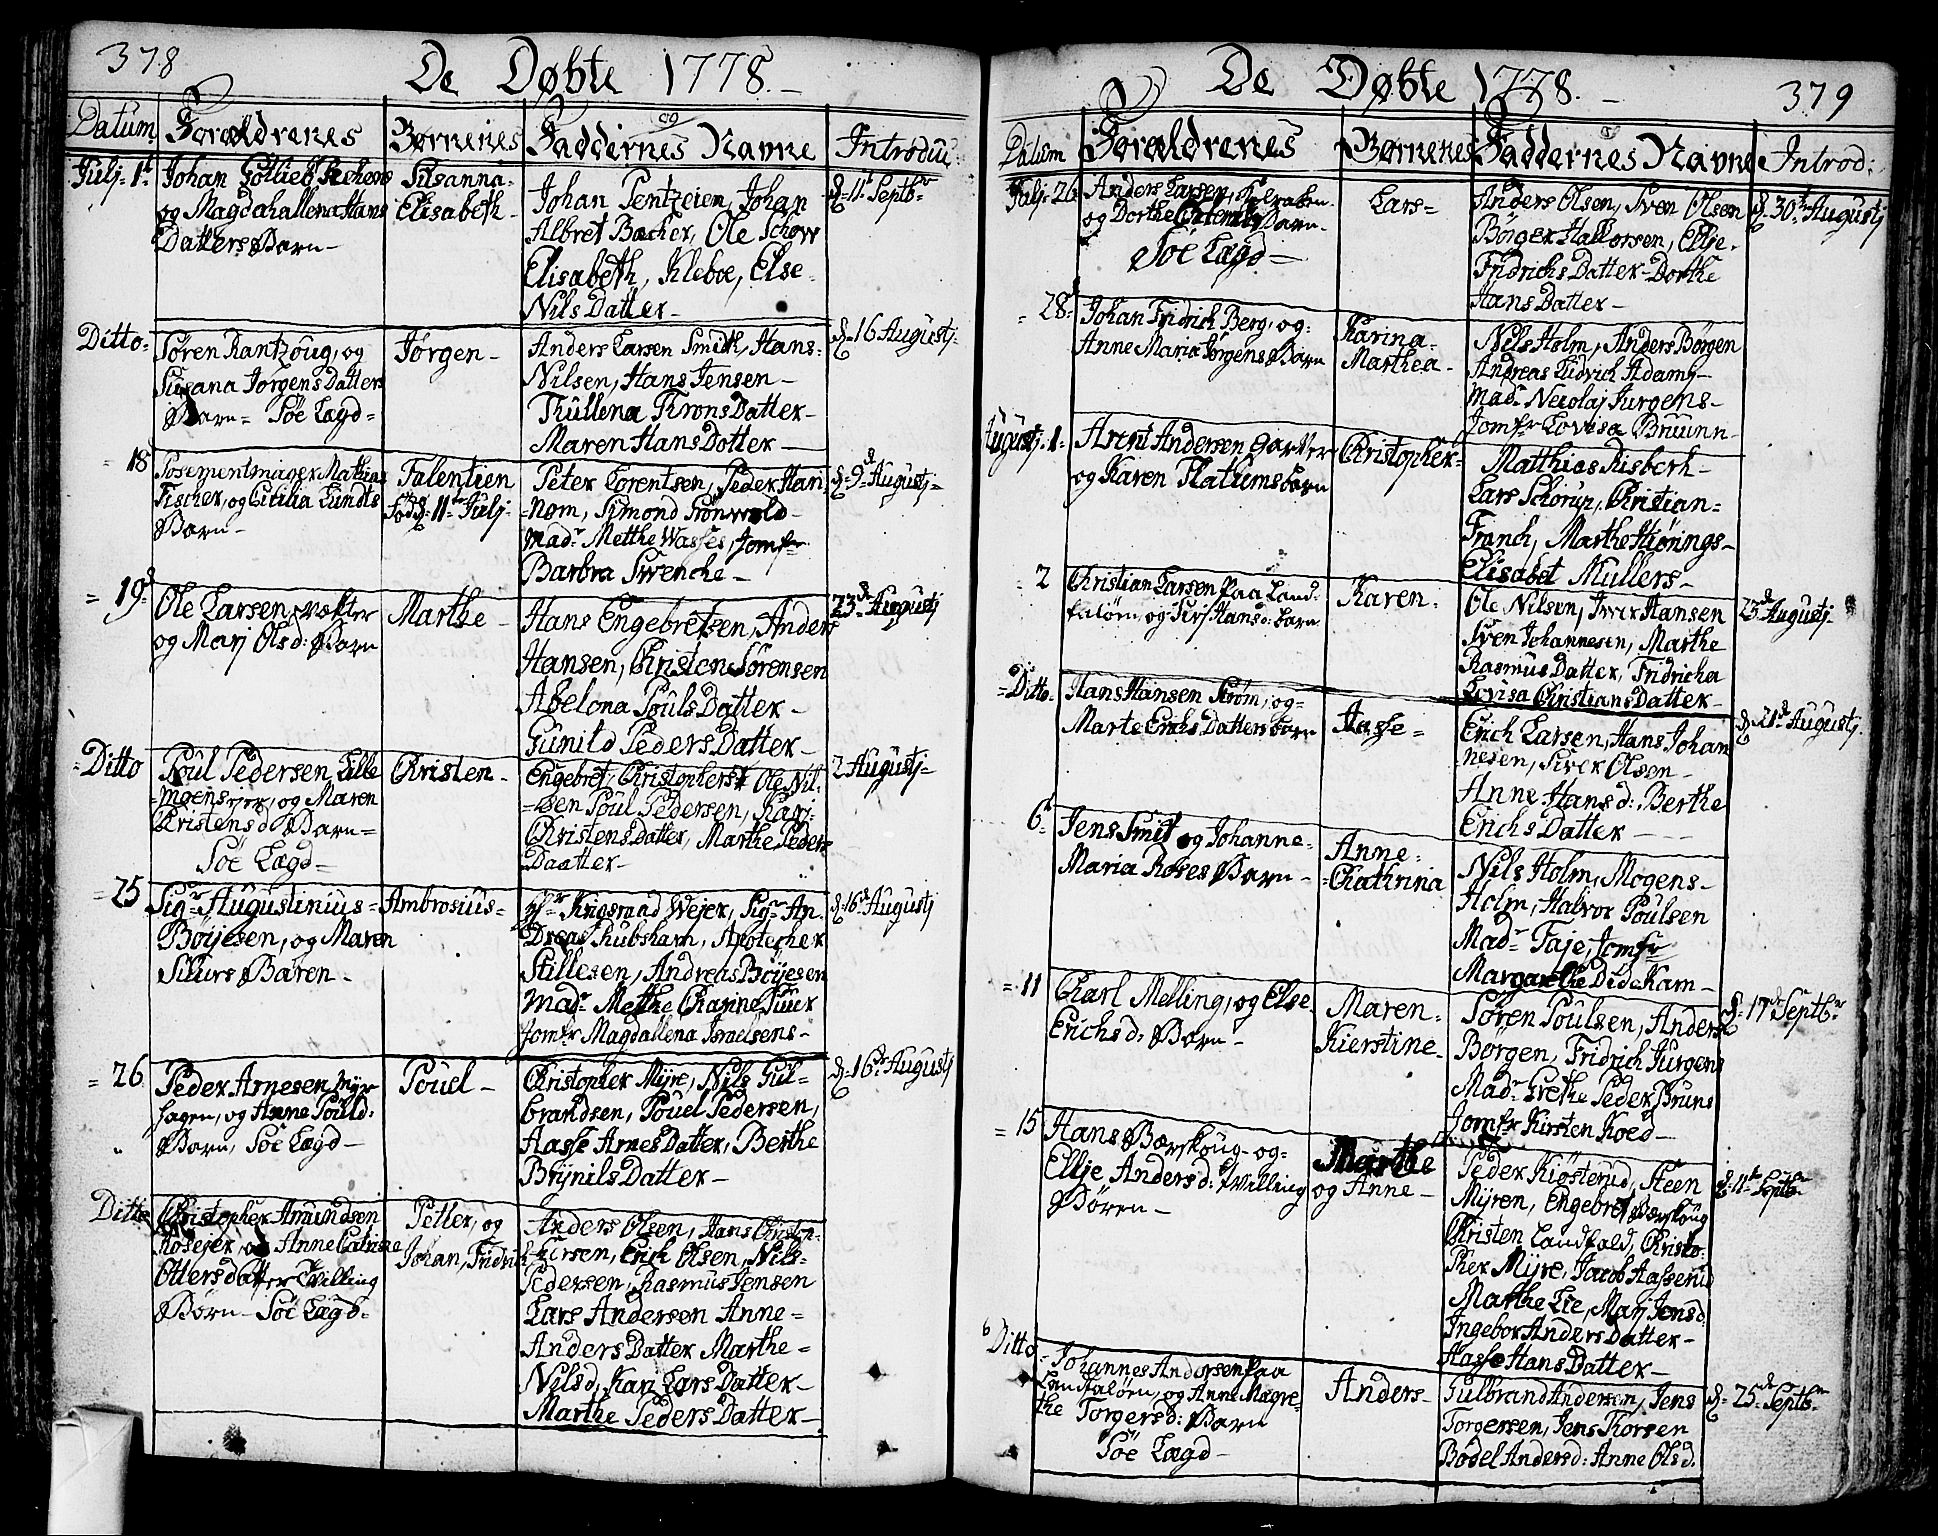 378
De Døbte 1778.
Datum
Forældrenes
Børnenes
Faddernes Navne
Introduc:
Julj 1t
Johan Gotlieb
og Magdahallena Hans
Datters Barn
Susanna
Elisabeth
Johan Pentzeien, Johan
Albret Bacher, Ole Schow
Elisabeth, Klebøe, Else
Nils Datter
d. 11t Septbr
Ditto
Søren Rantzoug, og
Susana Jørgens Datters
Barn Søe Lægd
Jørgen
Anders Larsen Smith, Hans
Nilsen, Hans Jensen
Thullena Throns Datter
Maren Hans Dotter
d. 16 Augustj
18
Posementmager Mathias
Fischer, og Cicilia Lundts
Barn
Falentien
Fød d. 11te Julj
Peter Lorentsen, Peder Han
nom, Simond Grønwold
Mad. Metthe Wasses, Jomfr
Barbra Swenche
d. 9d Augustj
19d
Ole Larsen, Vækter
og Marj Olsd: Barn
Marthe
Hans Engebretsen, Anders
Hansen, Christen Sørensen
Abelona Pouls Datter
Gunild Peders Datter
23d Augustj
Ditto
Poul Pedersen Lille
moensejer, og Maren
Christensd Barn
Søe Lægd
Christen
Engebret, Christophers Ole Nil
sen Poul Pedersen, Karj
Christens Datter, Marthe Peders
Daatter
2 Augustj
25
Sigr Augustinius
Boijesen, og Maren
Siuurs Baren
Ambrosius
Hr Kingsrand Wejer, Sigr An
dreas Rubsham, Apotecher
Stillesen, Andreas Boijesen
Madr Metthe Charine Tuux
Jomfr Magdallena Israelsens
d. 16d Augustj
26
Peder Arnesen Myr
hagen, og Anne Pould:
Barn, Søe Lægd
Pouel
Christopher Myre, Nils Gul
brandsen, Pouel Pedersen,
Aasse Arnes Datter, Berthe
Brynils Datter
d. 16de Augustj
Ditto
Christopher Amundsen
Rosejer, og Anne Catrine
Ottersdatter Tvilling
Børn Søe Lægd
Petter, og
Johan, Fridrich
Anders Olsen, Hans Christoph
Ersen, Erich Olsen, Nils
Pedersen, Rasmus Jensen
Lars Andersen Anne
Anders Datter Marthe
Nilsd, Kari Lars Datter
Marthe Peders Datter
De Døbte 1778.
379
Datum
Forældrenes
Børnenes
Faddernes Navne
Introd:
Julj 26
Anders Larsen,
og Dorthe Barn
Søe Lægd
Lars
Anders Olsen, Sven Olsen
Børger Hallorsen, Ellje
Fridrichs Datter Dorthe
Hans Datter
d. 30te Augustj
28
Johan Fridrich Berg, og
Anne Maria Jørgens Barn
Karina
Marthea
Nils Holm, Anders Børgen
Andreas Ludvich Adamj
Mad. Necolaj Jurgens
Jomfr Lovisa Bruunn
Augustj 1
Arent Andersen Garver
og Karen Plathums barn
Christopher
Matthias Risberh
Lars Schorup, Christian
Franch, Marthe Hiørings
Elisabet Mullers
2
Christian Larsen paa Land
faløen, og Sirj Hansd: barn
Karen
Ole Nilsen, Iver Hansen
Sven Johannesen, Marthe
Rasmus Datter, Fridricha
Lovisa Christians Datter
23d Augustj
Ditto
Hans Hansen Strøm, og
Marte Erichs Datters barn
Aasse
Erich Larsen, Hans Johan
nesen, Siver Olsen
Anne Hansd: Berthe
Erichs Datter
d. 21d Augustj
6t
Jens Smit og Johanne
Maria Roses Barn
Anne
Chathrina
Nils Holm, Mogens
Holm, Halvor Poulsen
Madr Faje, Jomfr
Margarethe Didekam
11
Charl Melling, og Else
Erichsd: Barn
Maren
Kierstine
Søren Poulsen, Anders
Børgen, Fridrich Jurgens
Madr Grethe Peder Bruns
Jomfr Kirsten Koed
d. 17de Septbr
15
Hans Bærskoug og
Ellje Andersd: Tvilling
Børen
Marthe
og Anne
Peder Kiøsterud, Steen
Myren, Engebret Bærskoug
Christen Landfald, Christo
pher Myre, Jacob Aasserud
Marthe Lie, Marj Jensd:
Ingebor Anders Datter
Aasse Hans Datter
d. 11te Septbr
Ditto
Johannes Andersen paa
Landfaløen, og Anne Magre
the Torgersd: Barn
Søe Lægd
Anders
Gulbrand Andersen, Jens
Torgersen, Jens Thorsen
Bodel Andersd: Anne Olsd.
d. 25de Septbr